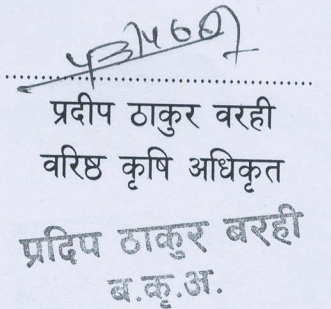 प्रदीप ठाकुर वरही
वरिष्ठ कृषि अधिकृत
प्रदिप ठाकुर बरही
ब.कृ.अ.